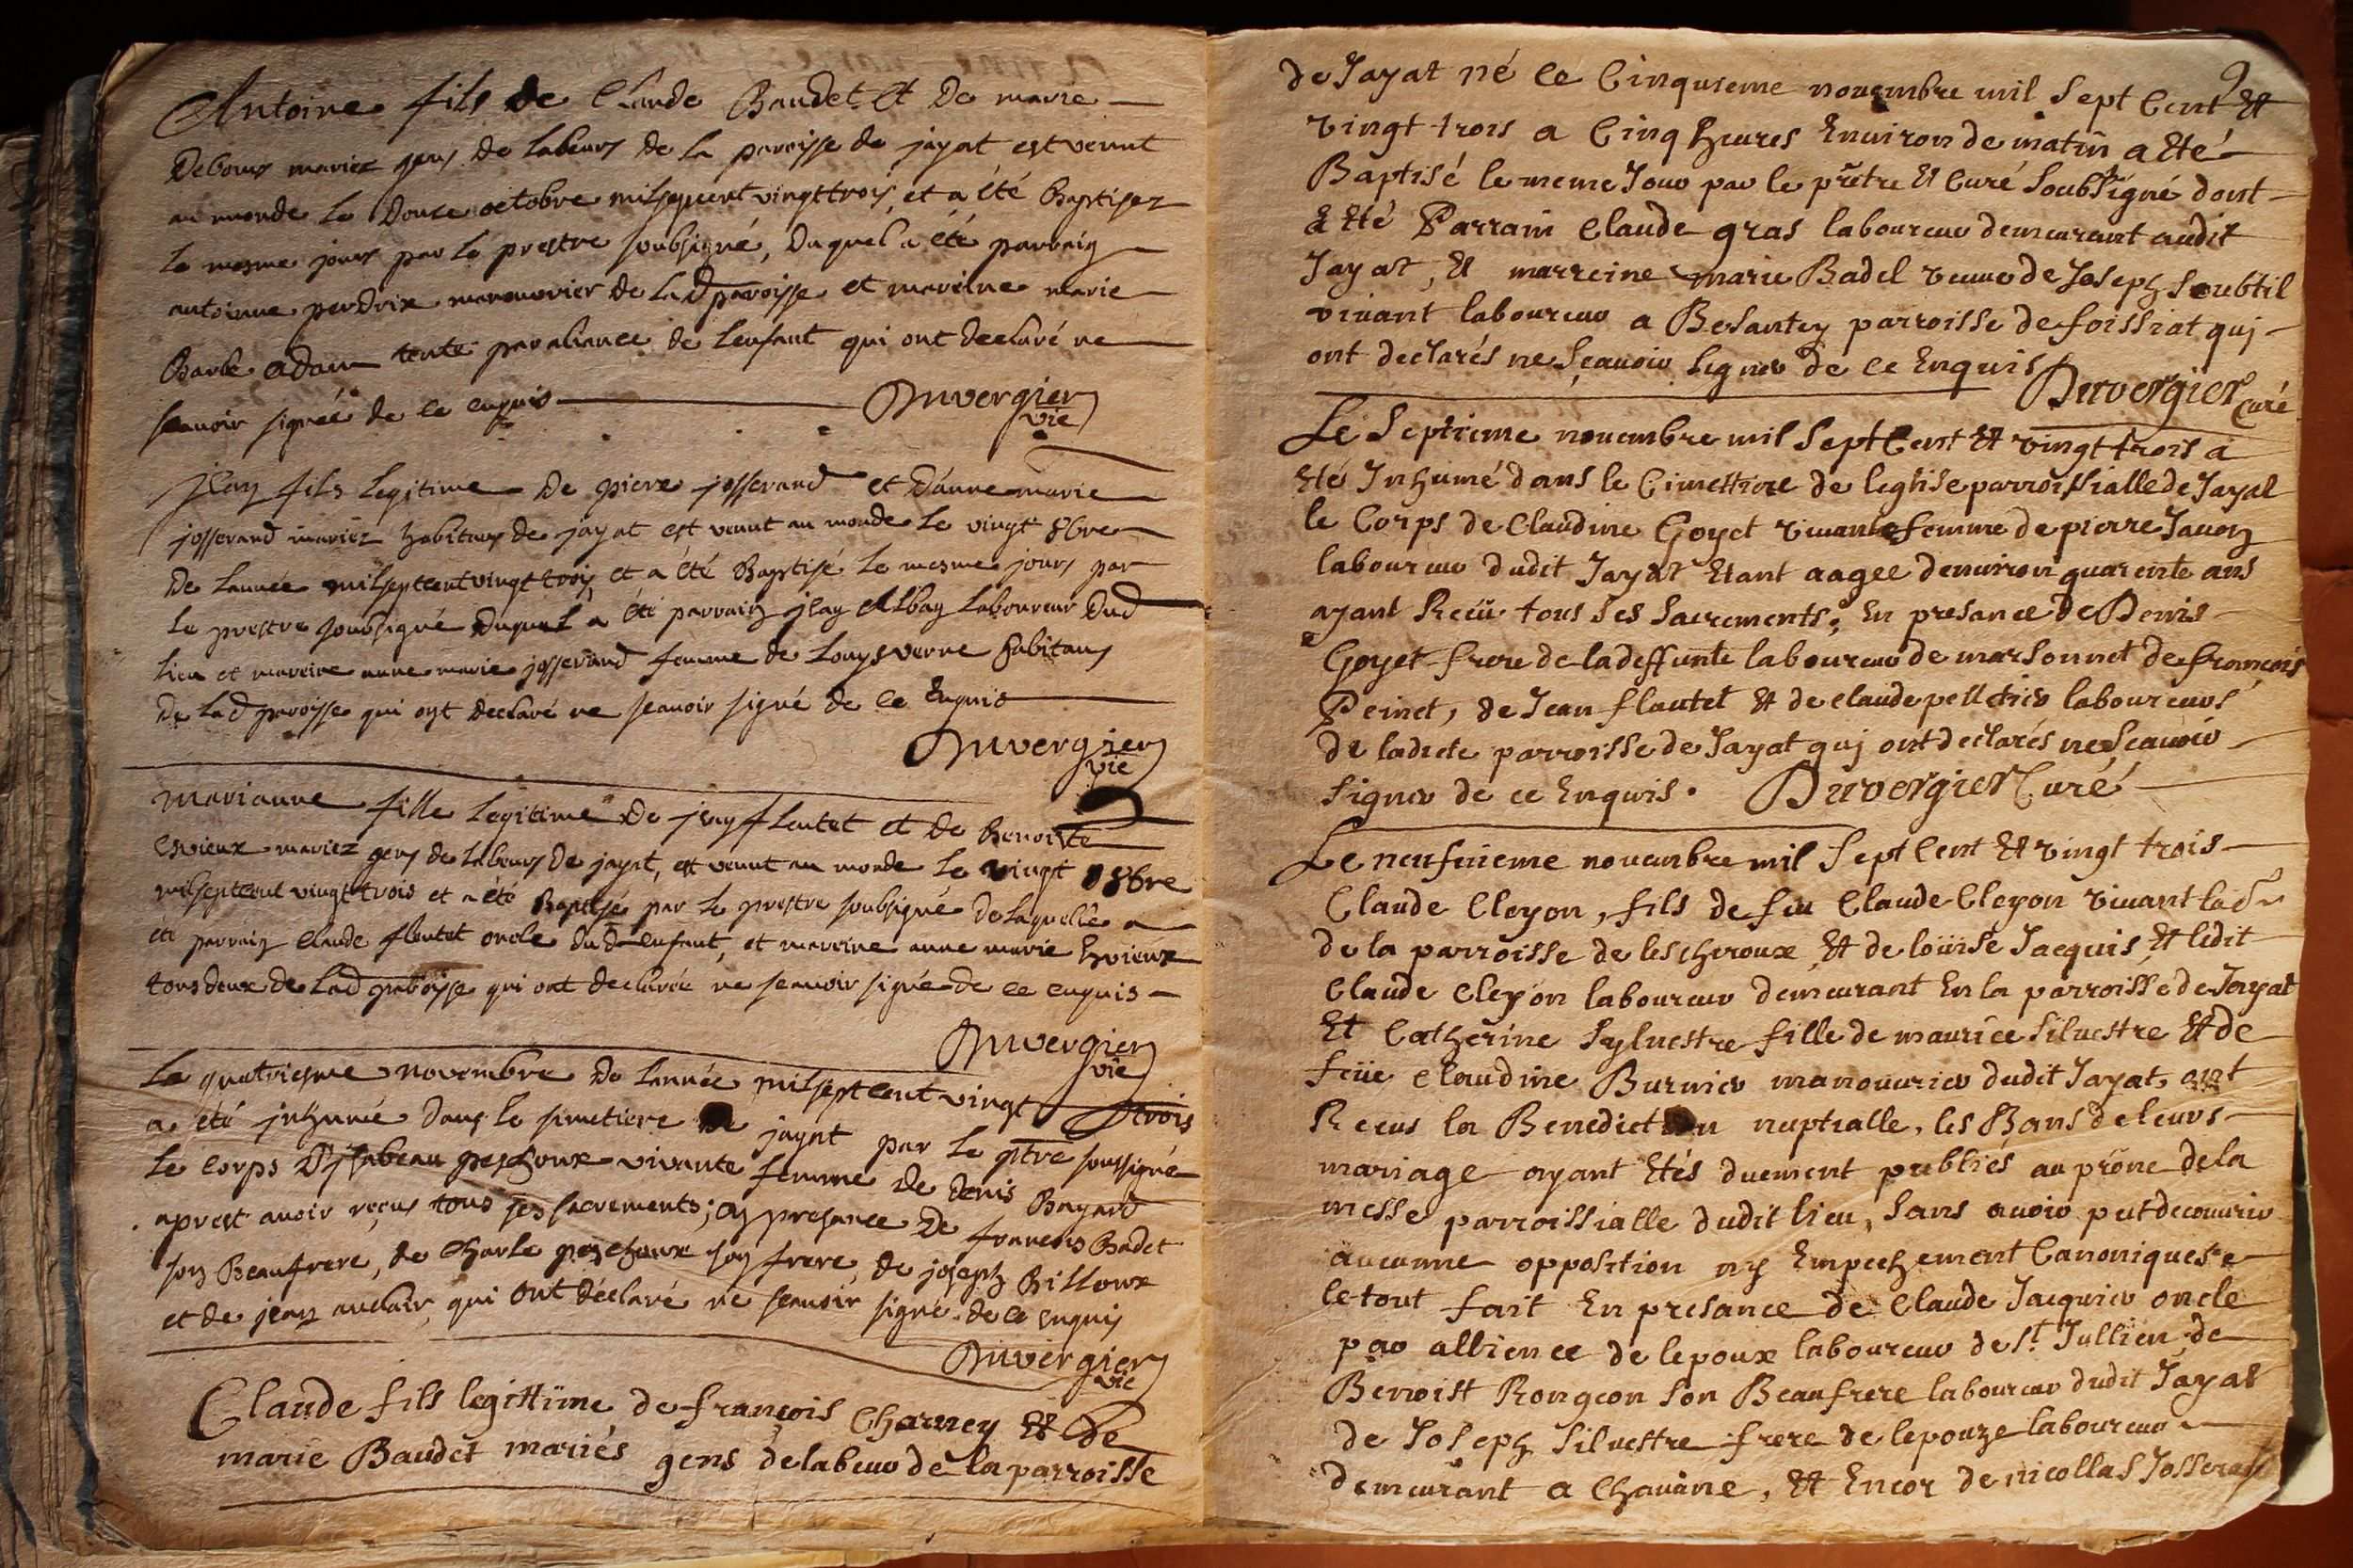 Antoine fils de Claude Baudet et De marie
Debour mariez gens De Labeurs de La paroisse de jayat est venut
au monde Le Douce octobre milsepcent vingttrois, et a été Baptisez
Le mesme jours par Le prestre soubsigné, Duquel a été parraig
antoinne perdrix manouvrier de Lad paroisse et mareine marie
Barbe adam tente par aliance de Lenfant qui ont declaré ne
seavoir signéé de ce enquis Duvergier
vic
jeay fils Legitime De piere josserand et D'anne marie
josserand mariez habitans de jayat est venut au monde Le vingt 8bre
De Lannée milseptcent vingt trois, et a été Baptisé Le mesme jours par
Le prestre soubsigné Duquel a été parraig jeay Albag Laboureur Dud
Lieu et mareine anne marie josserand femme de Louys verne habitans
De Lad paroisse qui ont declaré ne seavoir signé de ce Enquis
Duvergier
vic
Marianne fille Legitime De jeay flautet et de Benoiste
Esvieux mariez gens de Labeurs De jayat, est venut au monde Le vingt 8bre
milseptcent vingt trois et a été Baptisé par Le prestre soubsigné De Laquelle a
été parraig Claude flautet oncle Dud enfant, et mareine anne marie Esvieux
tous deux de Lad paroisse qui ont declarée ne seavoir signée de ce enquis
Duvergier
vic
Le quatriesme novembre De Lannée milseptcent vingt trois
a été jnhumée Dans Le simetiere De jayat par Le ptre soussigné
Le corps D'jsabeau peschoux vivante femme De Denis Bayard
aprest avoir reçus tous ses sacrements; en presance De francois Badet
soy Beaufrere, de Charle peschoux soy frere, de joseph Billoux
et de jean auclair, qui ont déclaré ne seavoir signé de ce enquis
Duvergier
vic
Claude fils legittime de francois Charney Et De
marie Baudet mariés gens de labeur de la parroisse
2
de Jayat né le Cinquieme novembre mil Sept Cent Et
vingt trois a Cinq heures Environ de matin a Eté
Baptisé le meme Jour par le prêtre Et Curé Soubsigné dont
a Eté Parrain Claude gras laboureur demeurant audit
Jayat, Et marreine marie Badel veuve de Joseph Soubtil
vivant laboureur a Besantey parroisse de foissiat quj
ont declarés ne Sçavoir Signer de ce Enquis
Duvergier Curé
Le Septieme novembre mil Sept Cent Et vingt trois a
Eté Inhumé dans le Cimettiere de leglise parroissialle de Jayat
le Corps de Claudine Goyet vivante femme de pierre Javon
laboureur dudit Jayat Etant aagee denviron quarente ans
ayant Reçû tous Ses Sacrements, En presance de Denis
Goyet frere de la deffunte laboureur de marsonnet de francois
Peinet, de Jean flautet Et de Claude pelletier laboureurs
de ladicte parroisse de Jayat quj ont declarés ne Sçavoir
Signer de ce Enquis. Duvergier Curé
Le neufuieme novembre mil Sept Cent Et vingt trois
Claude Cleyon, fils de feu Claude Cleyon vivant labr
de la parroisse de lescheroux Et de loüise Jacquis, Et ledit
Claude Cleyon laboureur demeurant En la parroisse de Jayat
Et Catherine Sylvestre fille de maurice Silvestre Et de
feüe Claudine Burnier manouvrier dudit Jayat ont
Recus la Benediction nuptialle, les Bans de leurs
mariage ayant Etés duement publiés au prône de la
messe parroissialle dudit lieu, Sans avoir put decouvrir
aucunne opposition ny Empechement Canoniques
le tout fait En presance de Claude Jacquier oncle
par allience de lepoux laboureur de St. Jullien, de
Benoist Rongeon Son Beaufrere laboureur dudit Jayat
de Joseph Silvestre frere de lepouze laboureur
demeurant a Chavane, Et Encor de nicollas Josseran